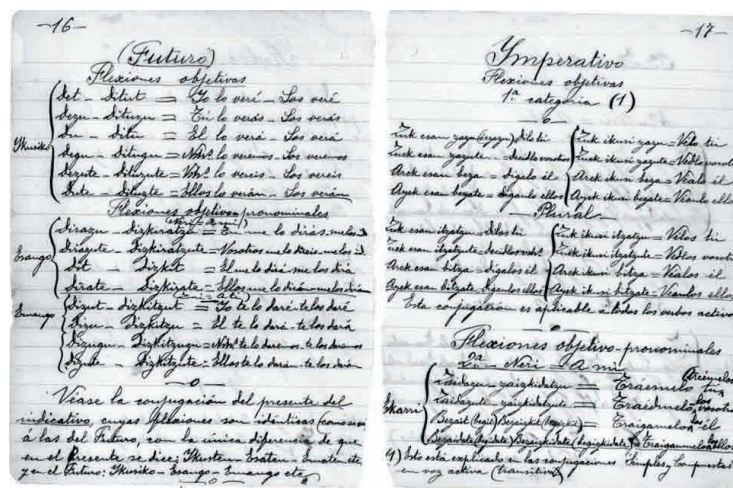 -16-
(Futuro)
Flexiones objetivas
det - ditut = Yo lo veré - Los veré
dezu - dituzu = Tú lo verás - Los verás
du - ditu = El lo verá - Los verá
degu - ditugu = Nos. lo veremos - Los veremos
dezute - dituzute = Vos. lo vereis - Los vereis
dute - dituzte = Ellos lo verán - Los verán
Ikusiko
Flexiones objetivo-pronominales
(Neri = a mi)
dirazu - dizkiratzu = Tú me lo dirás, me los
dirazute - dizkiratzute = Vosotros me lo direis - me los
dit - dizkit = El me lo dirá - me los dirá
dirate - dizkirate = Ellos me lo dirán - me los dirán
Esango
(Zuri = a ti)
dizut - dizkitzut = Yo te lo daré - te los daré
dizu - dizkitzu = El te lo dará - te los dará
dizugu - dizkitzugu = Nos. te lo daremos - te los daremos
dizute - dizkitzute = Ellos te lo darán - te los darán
Emango
Véase la conjugación del presente del
indicativo, cuyas flexiones son idénticas
á las del Futuro, con la única diferencia de que
en el Presente se dice: Ikusten - Esaten - Ematen etc
y en el Futuro: Ikusiko - Esango - Emango etc
-17-
Imperativo
Flexiones objetivas
1ª categoria (1)
Zuk esan zazu Dilo tú
Zuk esan zazute = decidlo vosotros
Arek esan beza = digalo él
Ayek esan bezate = diganlo ellos
Zuk ikusi zazu = Velo tú
Zuek ikusi zazute = Vedlo vosotros
Arek ikusi beza = Véalo él
Ayek ikusi bezate = Veanlo ellos
- Plural -
Zuk esan itzatzu = Dilos tú
Zuek esan itzatzute = decidlos vos.
Arek esan bitza = digalos él
Ayek esan bitzate = diganlos ellos
Zuk ikusi itzatzu = Velos tú
Zuek ikusi itzatzute = Vedlos vosotros
Arek ikusi bitza = Véalos él
Ayek ikusi bitzate = Veanlos ellos
Esta conjugación es aplicable á todos los verbos activos
Flexiones objetivo-pronominales
2ª - Neri = A mi
Ekarri
zaidazu - zaizkidatzu = Traemelo tú
zaidazute - zaizkidatzute = Traédmelo, los vosotros
= Traigamelo, los él
= Traiganmelo, los ellos
(1) Esto está explicado en las conjugaciones Simples y Compuestas
en voz activa (transitiva)